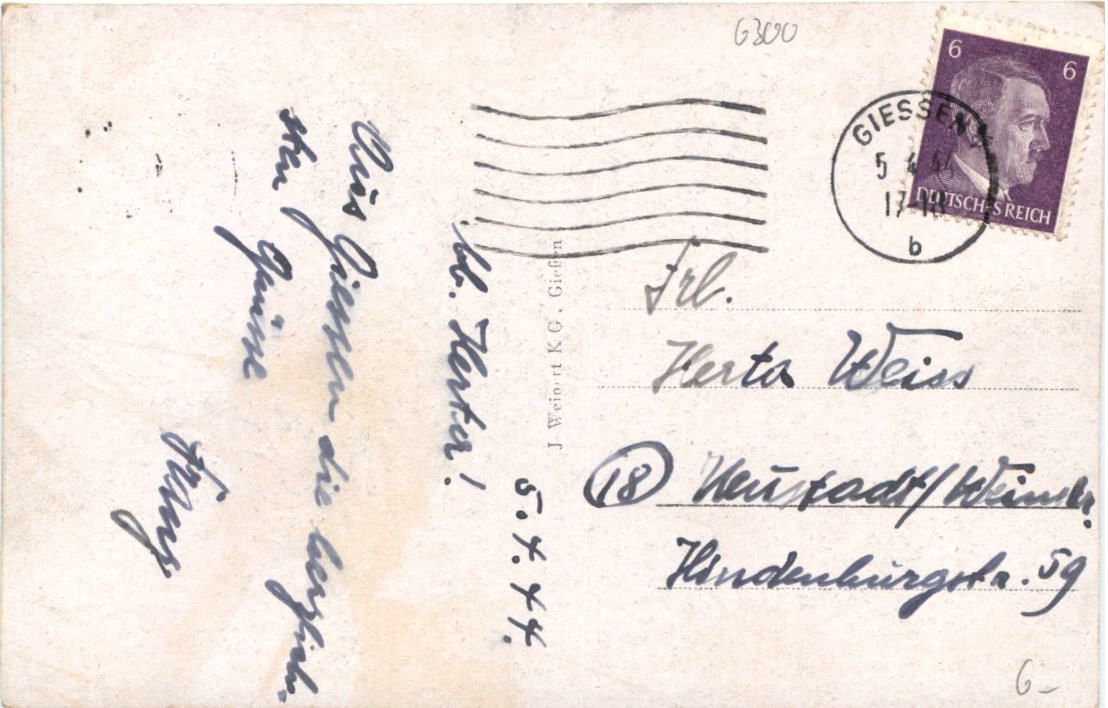 6300
6 6
DEUTSCHES REICH
GIESSEN 1
5.4.44
17-18
b
5.4.44.
lb. Herta!
Aus Giessen die herzlich-
sten Grüsse
J Weinert K.G., Gießen
Frl.
Herta Weiss
18 Neustadt/Weinstr.
Hindenburgstr. 59
6-